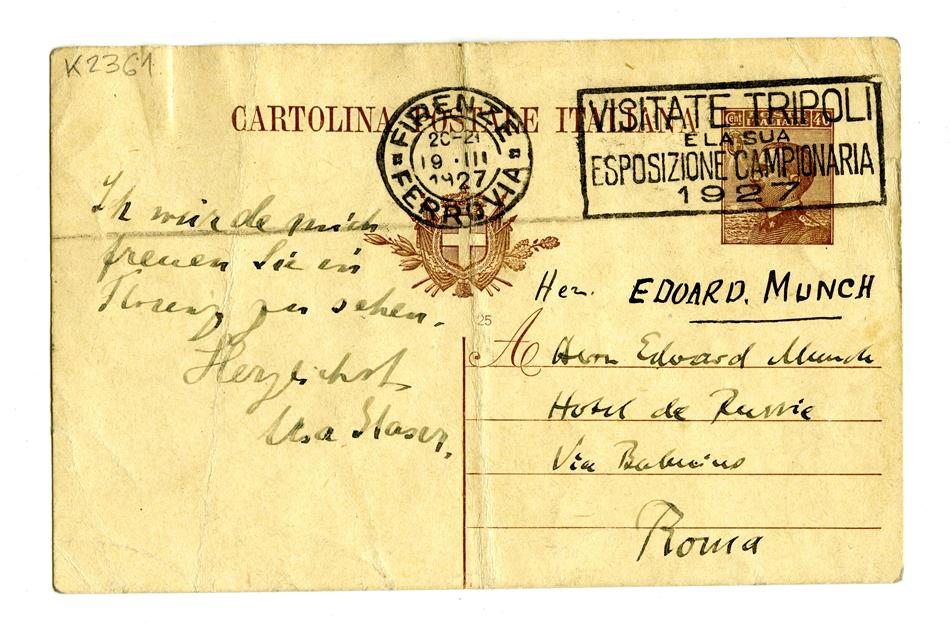 K2361
CARTOLINA POSTALE ITALIANA
FIRENZE
20-21
19 · III
1927
FERROVIA
VISITATE TRIPOLI
E LA SUA
ESPOSIZIONE CAMPIONARIA
1927
Ich würde mich
freuen Sie in
Florenz zu sehen.
Herzlichst
Elsa Glaser.
25
Herr. EDOARD. MUNCH
A Herrn Edvard Munch
Hotel de Russie
Via Babuino
Roma